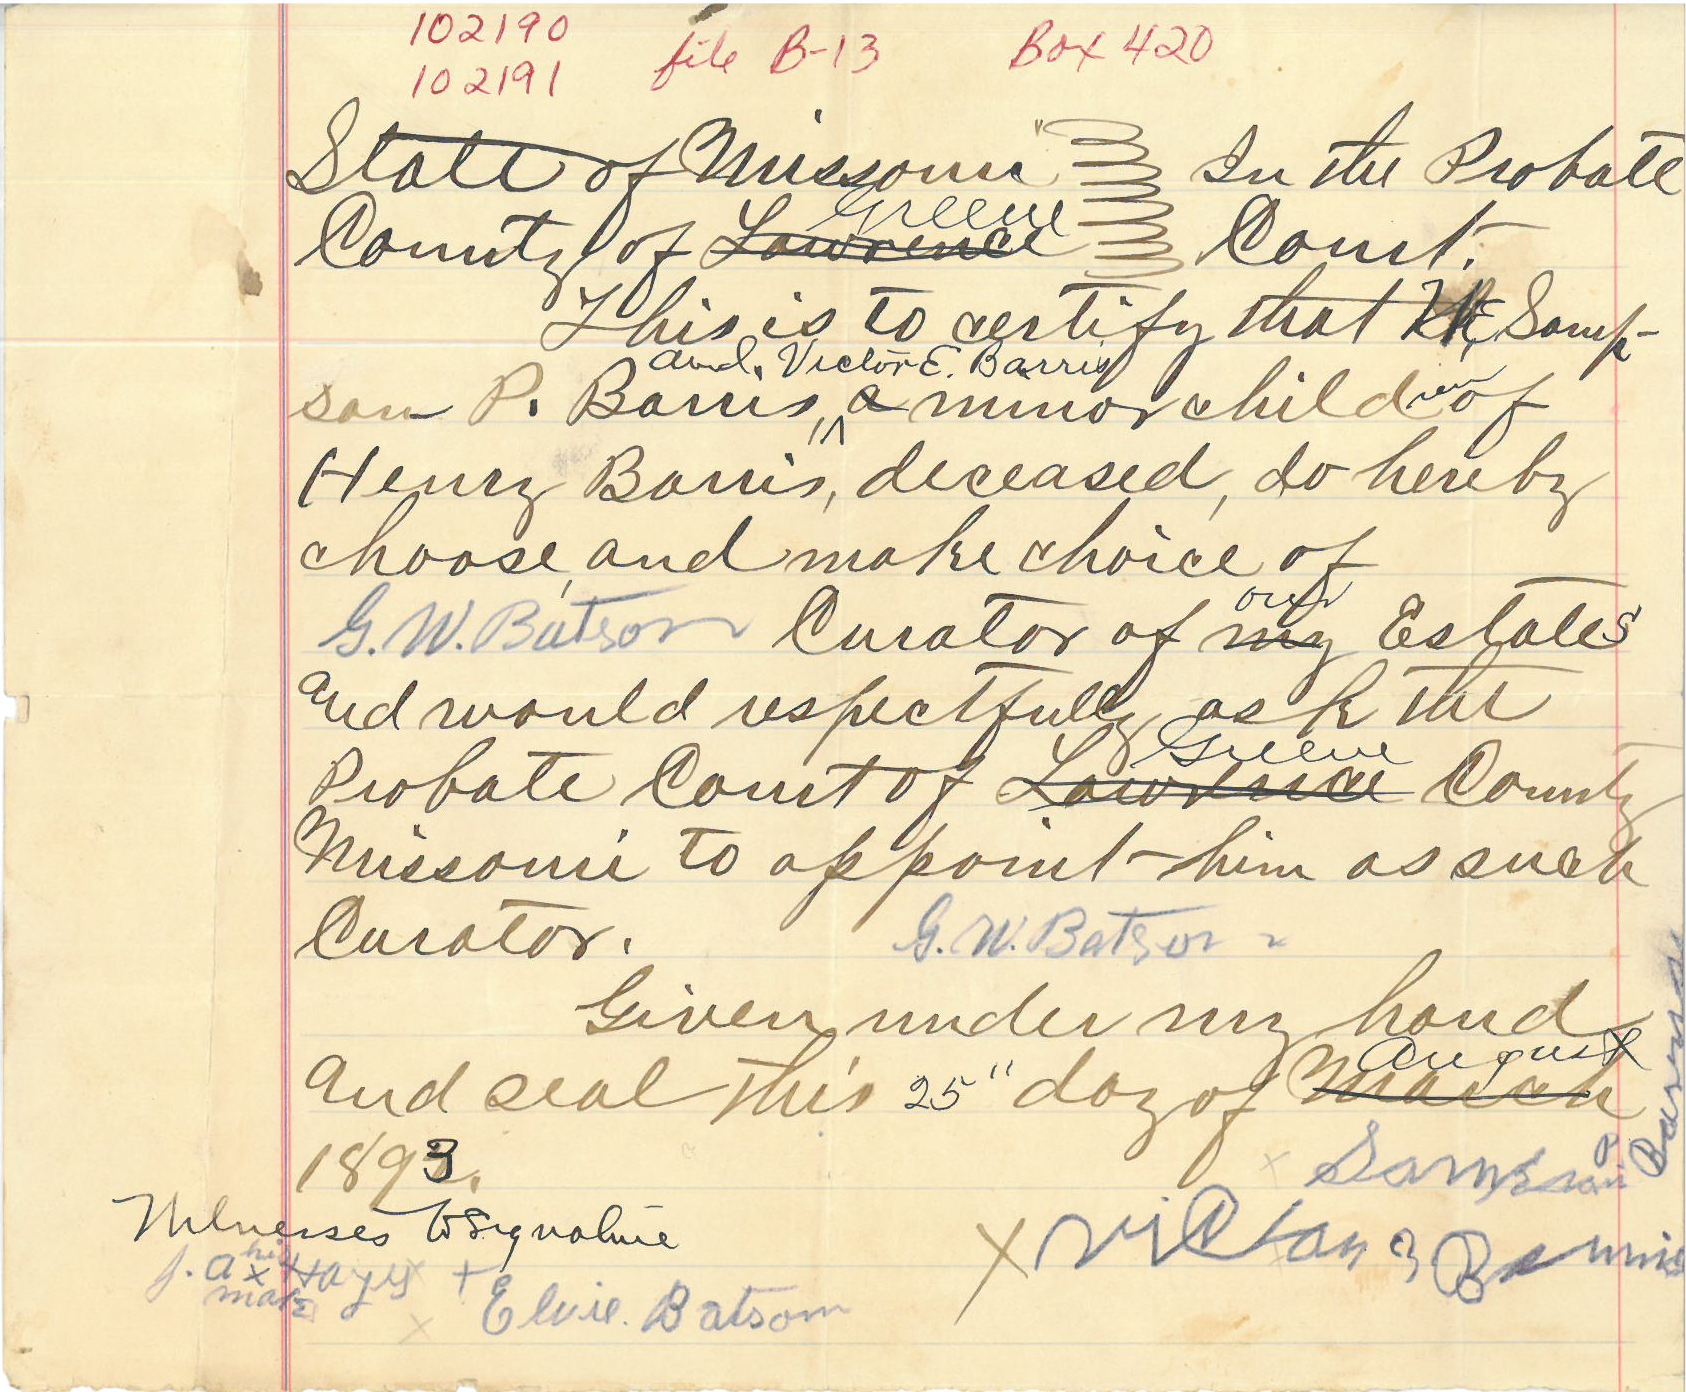 102190
102191
file B-13 Box 420
State of Missouri In the Probate
County of Lawrence Greene Court.
This is to certify that We, Samp-
son P. Barris, and Victor E. Barris a minor children of
Henry Barris, deceased, do hereby
choose and make choice of
G. W. Batson Curator of my our Estates
and would respectfully ask the
Probate Court of Lawrence Greene County
Missouri to appoint him as such
Curator. G. W. Batson
Given under my hand
and seal this 25" day of March August
1893.
Sampson P Barris
Witnesses to Signature
J. A. his x mark Hays
x Victor E Barris
+ Elvie. Batsom